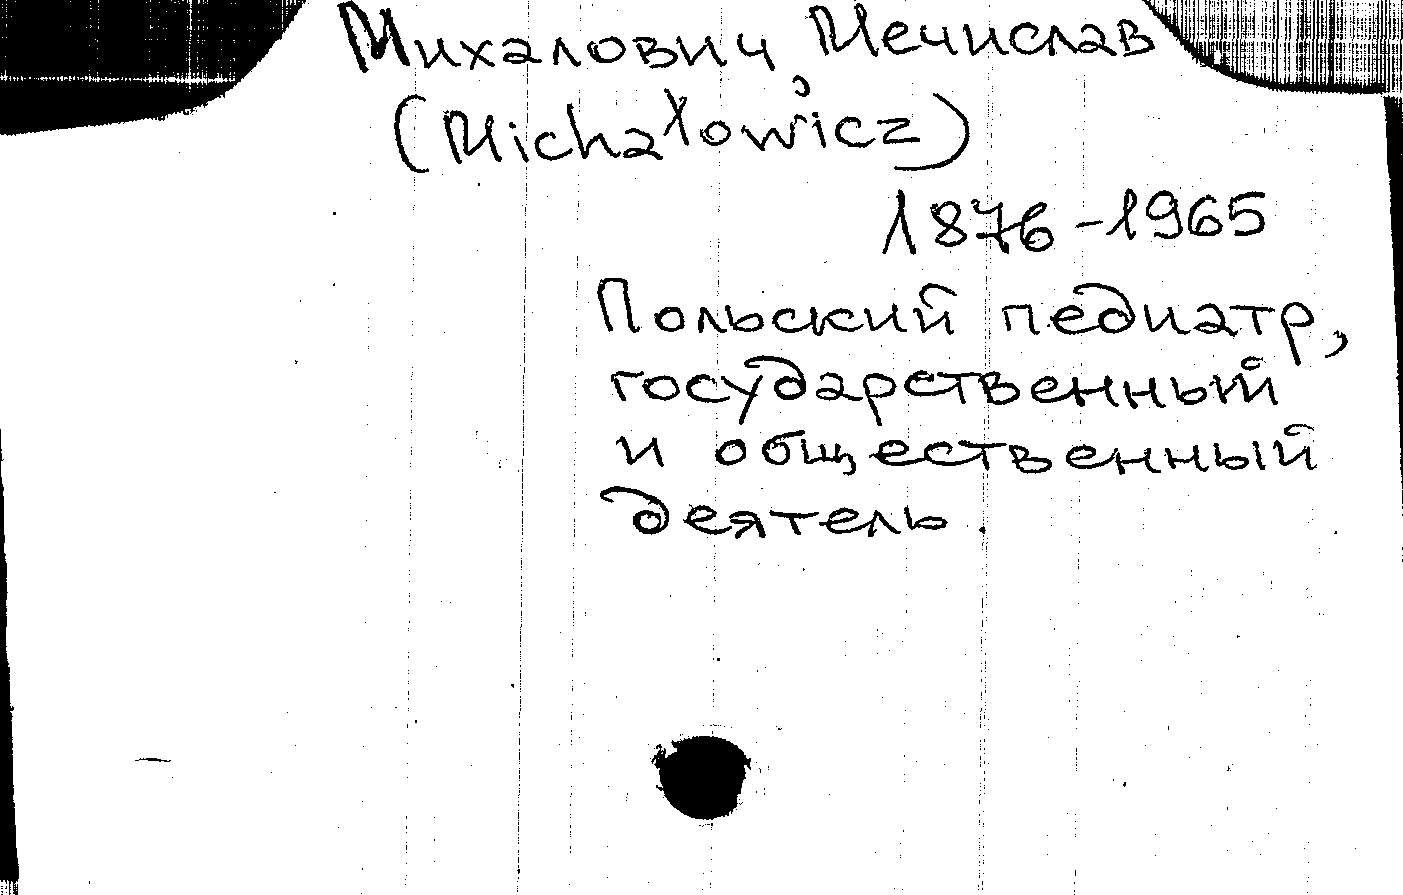 Михалович, Мечислав
(Michałowicz)
1876-1965
Польский педиатр,
государственный
и общественный
деятель.